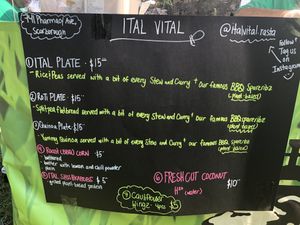 741 Pharmacy Ave,
Scarborough
ITAL VITAL
@italvital.rasta
Follow
+
Tag us
on
Instagram
① ITAL PLATE · $15
- Rice & Peas served with a bit of every Stew and Curry + our famous BBQ Spareribz
(plant based)
② Roti PLATE · $15
- Splitpea flatbread served with a bit of every Stew and Curry + our famous BBQ spareribz
(plant based)
③ Quinoa Plate $15
- Yummy Quinoa served with a bit of every Stew and Curry + our famous BBQ spareribz
(plant based)
④ ROAST (BBQ) CORN · $5
buttered
plain with lemon and chili powder
⑤ ITAL SHISHKABOBS $5
- grilled plant-based protein
⑥ FRESH CUT COCONUT
H²O (water) $10
⑦ Cauliflower
Wingz 4pcs $5